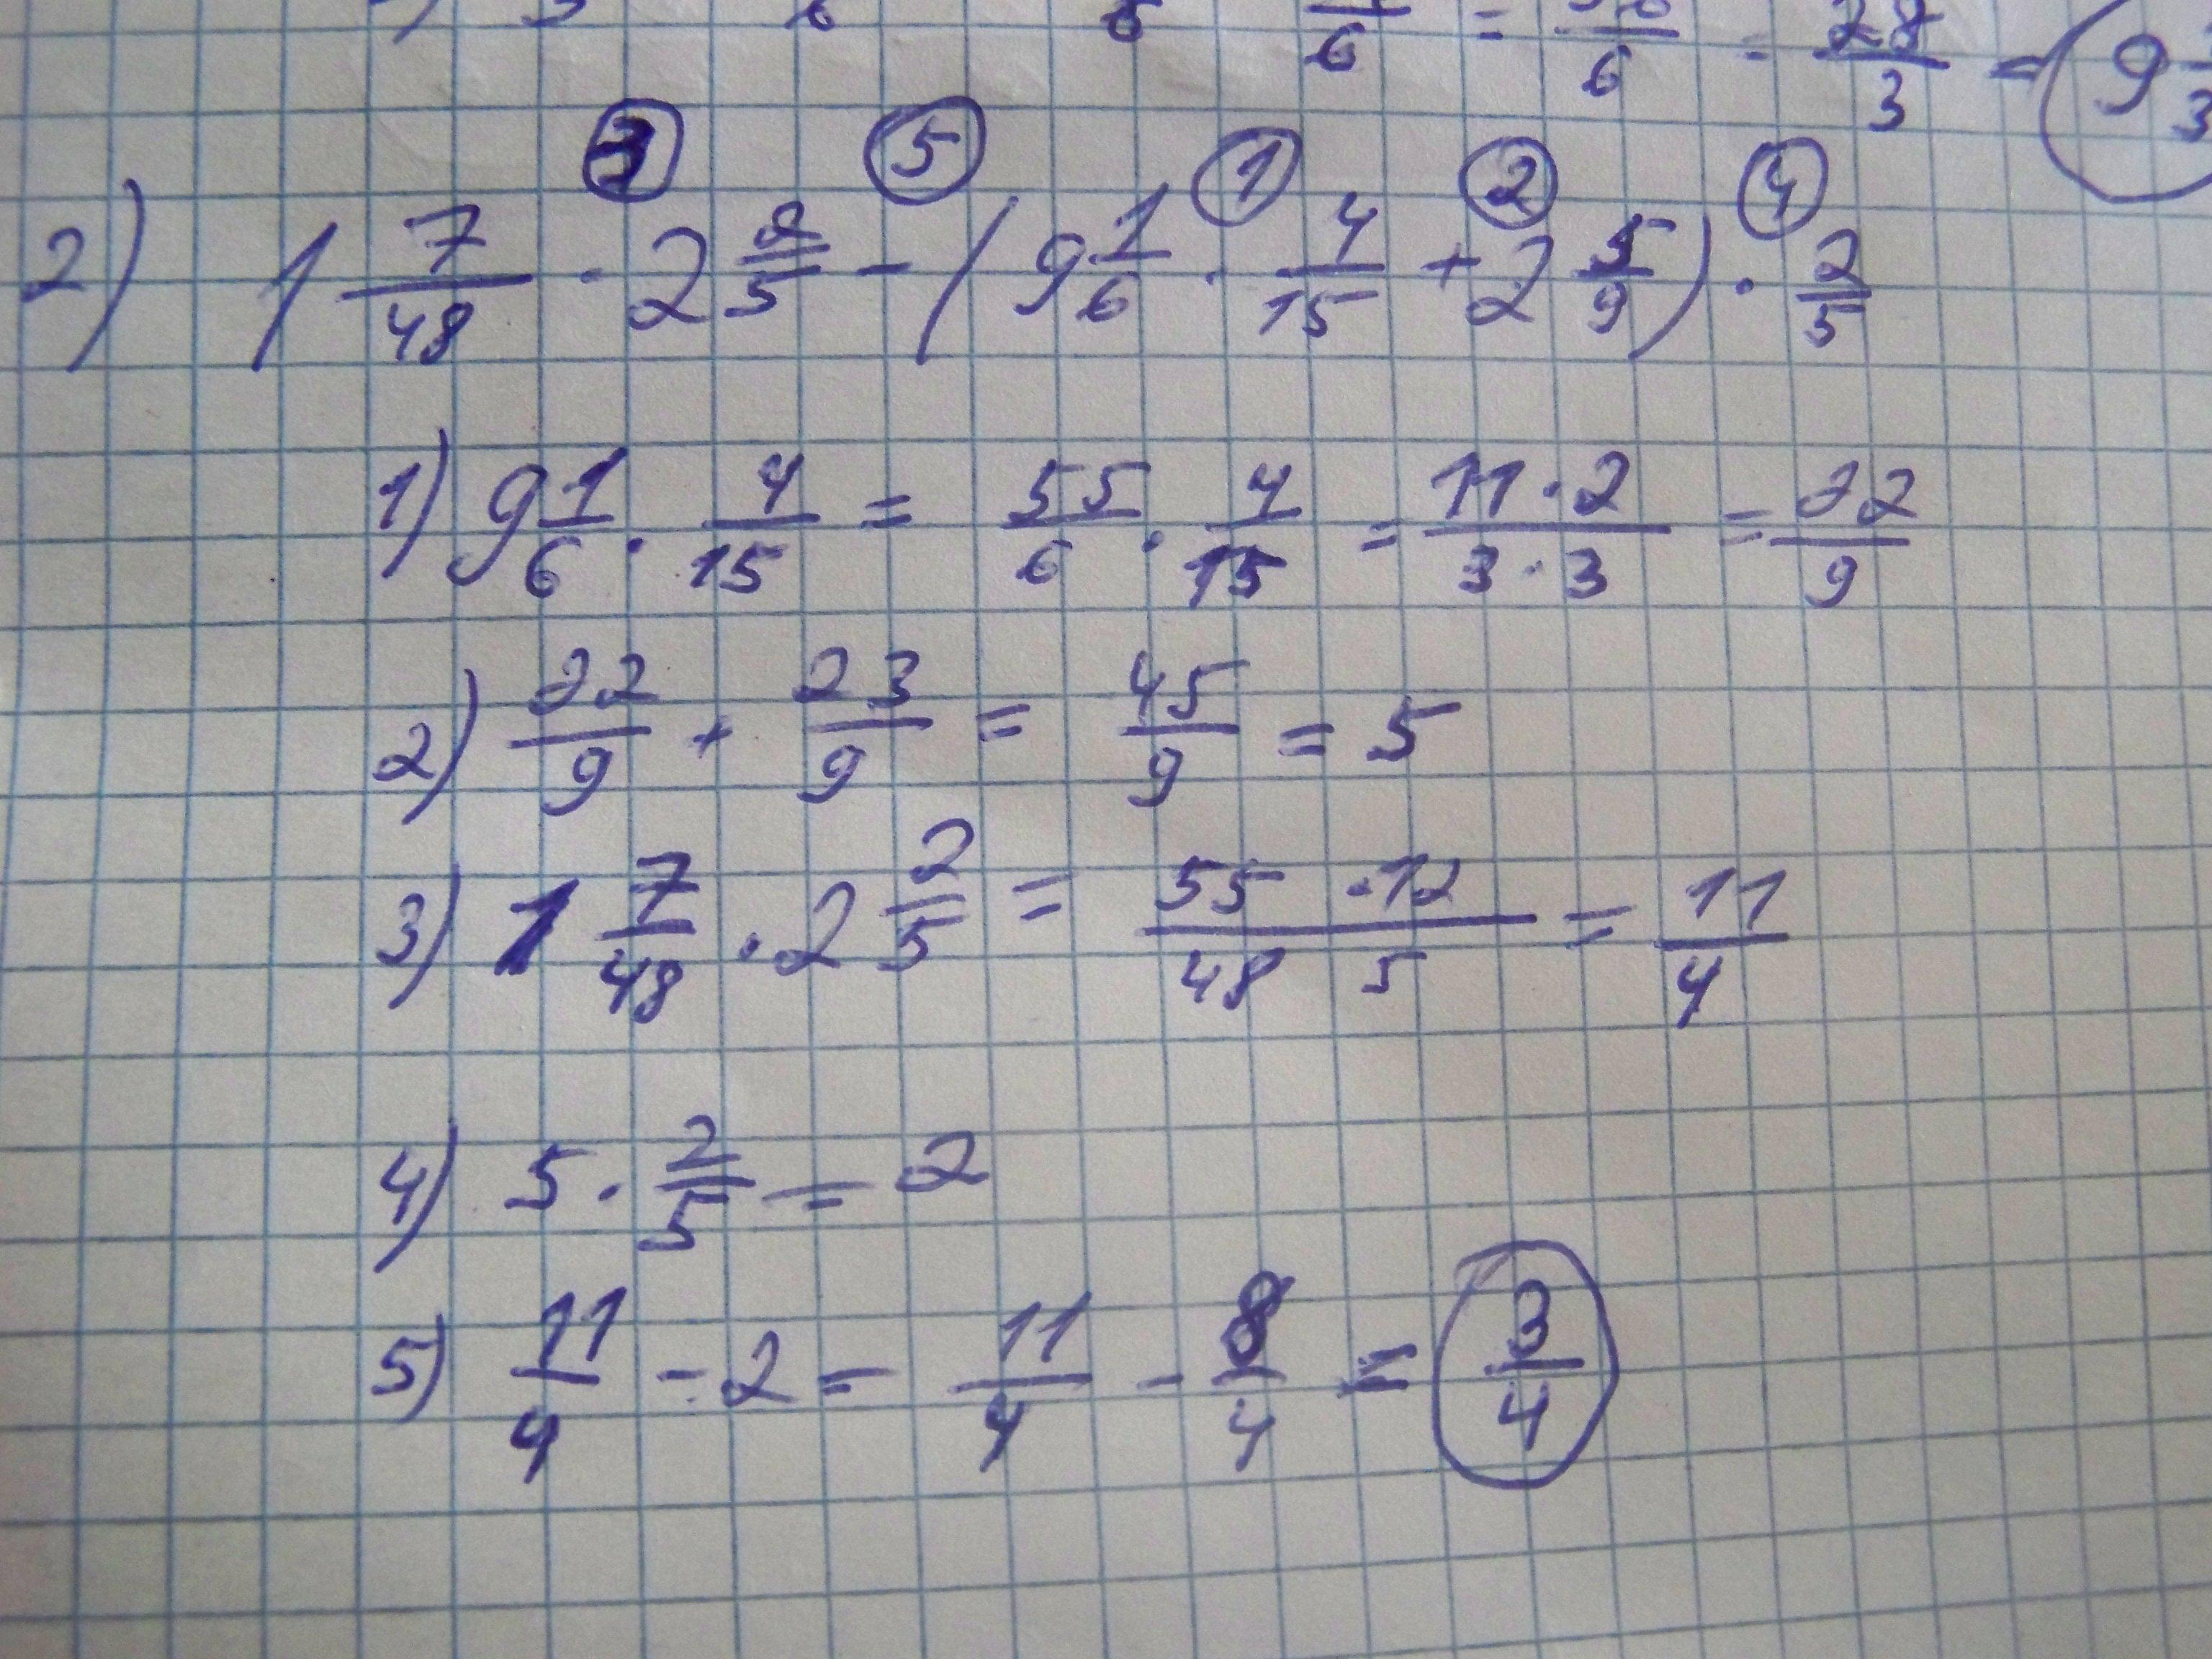 6 = 6 - 28/3 = 9
③ ⑤ ① ② ④
2) 1 7/48 · 2 2/5 - (9 1/6 · 4/15 + 2 5/9) · 2/5
1) 9 1/6 · 4/15 = 55/6 · 4/15 = 11·2/3·3 = 22/9
2) 22/9 + 23/9 = 45/9 = 5
3) 1 7/48 · 2 2/5 = 55 · 12/48 5 = 11/4
4) 5 · 2/5 = 2
5) 11/4 - 2 = 11/4 - 8/4 = 3/4